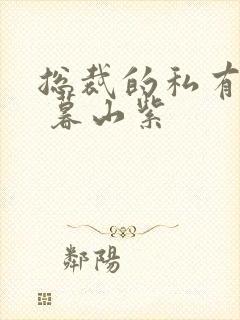 总裁的私有
暮山紫
鄰陽